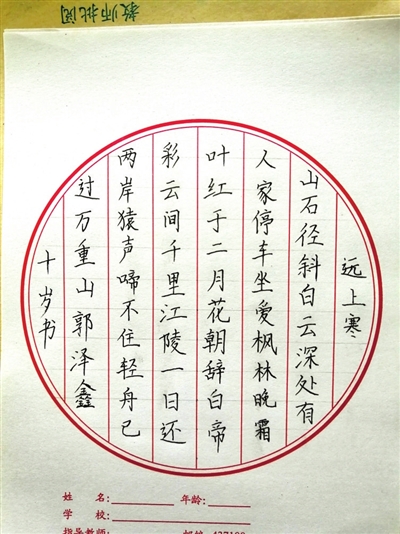 教师批阅
远上寒
山石径斜白云深处有
人家停车坐爱枫林晚霜
叶红于二月花朝辞白帝
彩云间千里江陵一日还
两岸猿声啼不住轻舟已
过万重山郭泽鑫
十岁书
姓 名: 年龄:
学 校:
指导教师: